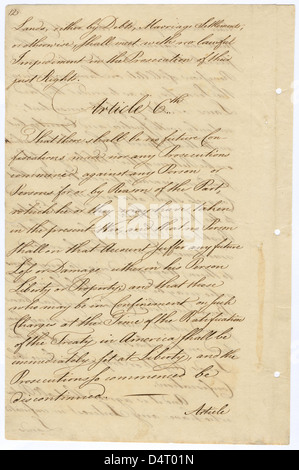 Lands, either by Debts, Marriage Settlements,
or otherwise, shall meet with no lawful
Impediment in the Prosecution of their
just Rights.
Article 6th
That there shall be no future Con-
fiscations made nor any Prosecutions
commenced against any Person or
Persons for or by Reason of the Part,
which he or they may have taken
in the present War, and that no Person
shall on that Account suffer any future
Loss or Damage either in his Person
Liberty or Property; and that those
who may be in Confinement on such
Charges at the Time of the Ratification
of the Treaty in America shall be
immediately set at Liberty, and the
Prosecutions so commenced be
discontinued.
Article
alamy
alamy
Image ID: D4T01N
www.alamy.com